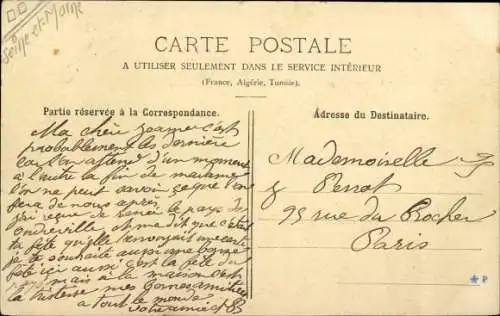 Seine-et-Marne
CARTE POSTALE
A UTILISER SEULEMENT DANS LE SERVICE INTÉRIEUR
(France, Algérie, Tunisie).
Partie réservée à la Correspondance.
Ma chère Jeanne c'est
probablement les dernière
car l'on attend d'un moment
à l'autre la fin de madame
l'on ne peut savoir ce que l'on
fera de nous après
j'ai reçue de le pays de
on me dit que c'était
ta fête qu'elle t'envoyait une carte
je te souhaite aussi une bonne
fête ici aussi c'est la fête du
pays mais à la maison c'est
la tristesse mes bonnes amitiés
a tout le monde
votre amie
Adresse du Destinataire.
Mademoiselle
J Perrot
95 rue du Rocher
Paris
P